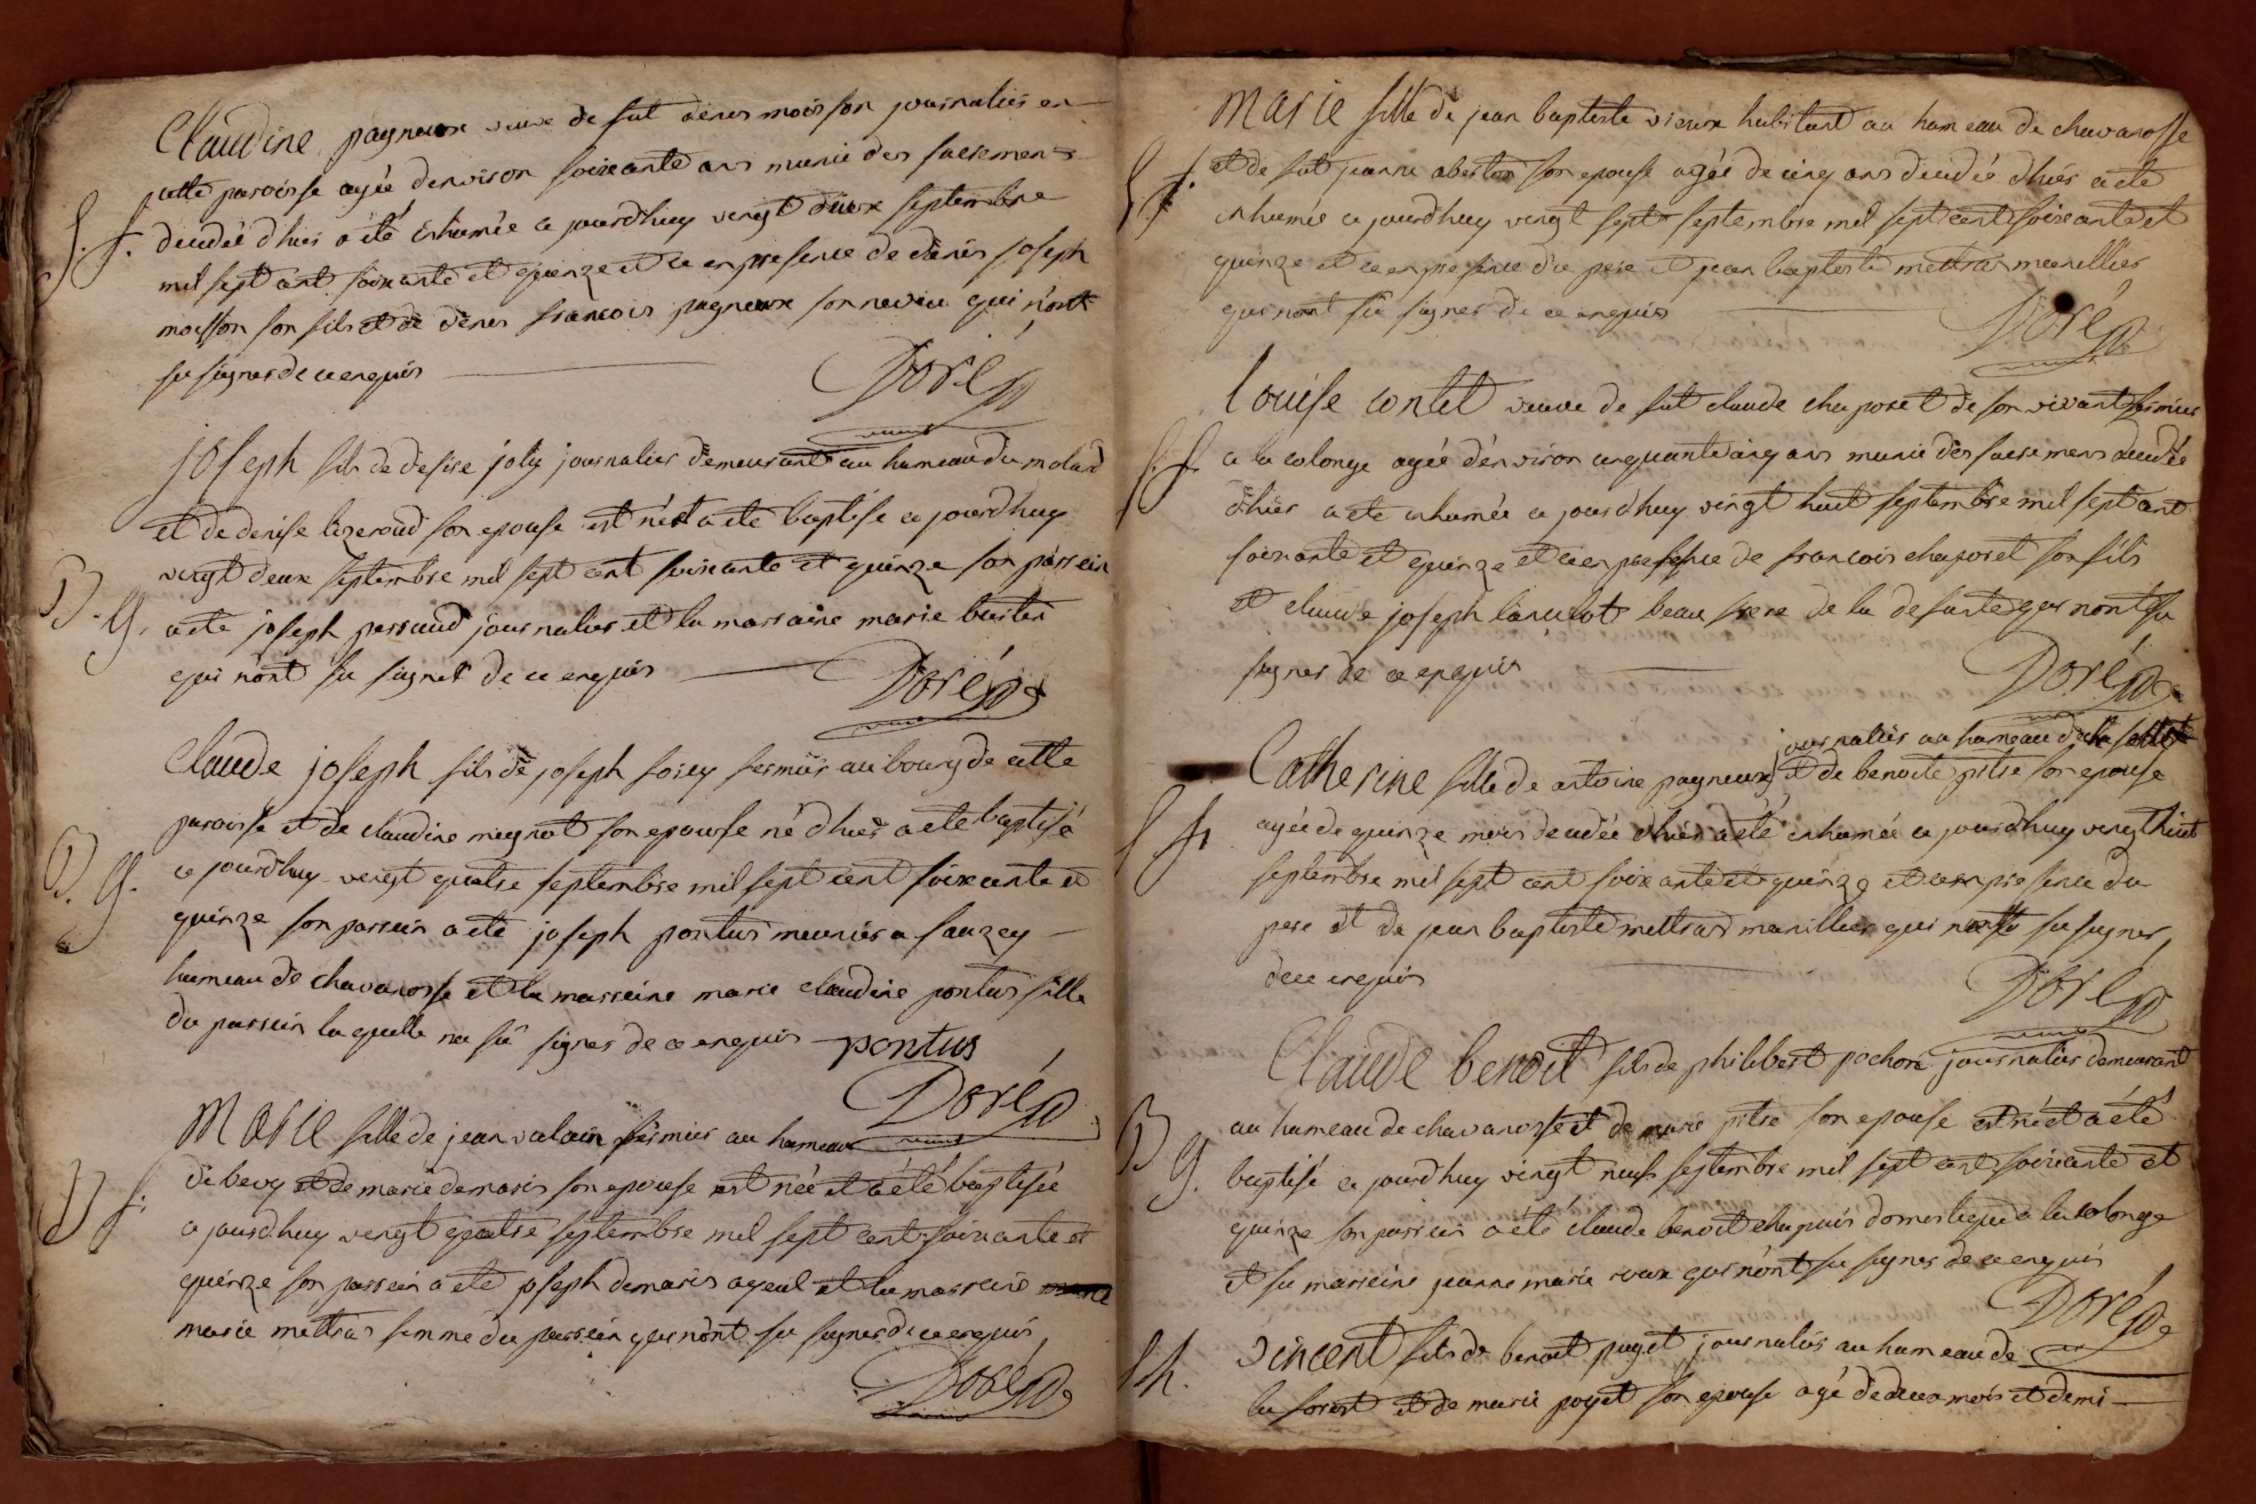 Claudine pagneux veuve de fut denis moisson journalier en
cette paroisse agée denviron soixante ans munie des sacremens
S. f. decedée dhier a été inhumée ce jourdhuy vingt deux septembre
mil sept cent soixante et quinze et ce en presence de denis joseph
moisson son fils et de denis francois pagneux son neveu qui n'ont
su signer de ce enquis
Doré
joseph fils de desire joly journalier demeurant au hameau du molard
et de denise lizeroud son epouse est né et a ete baptisé ce jourdhuy
vingt deux septembre mil sept cent soixante et quinze son parrein
B. G. a ete joseph perraud journalier et la marraine marie
qui n'ont su signer de ce enquis
Doré
Claude joseph fils de joseph forey fermier au bourg de cette
paroisse et de claudine mognot son epouse né dhier a ete baptisé
B. G. ce jourdhuy vingt quatre septembre mil sept cent soixante et
quinze son parrein a ete joseph pontus meunier a sauzey
hameau de chavanosse et la marreine marie claudine pontus fille
du parrein laquelle na sû signer de ce enquis pontus
Doré
Marie fille de jean valain fermier au hameau
de bevy et de marie demaris son epouse est née et a été baptisée
B f. ce jourdhuy vingt quatre septembre mil sept cent soixante et
quinze son parrein a ete joseph demaris ayeul et la marreine
marie mettras femme du parrein qui n'ont su signer de ce enquis
Doré
Marie fille de jean baptiste vieux habitant au hameau de chavanosse
S. f. et de fut jeanne son epouse agée de cinq ans decedée dhier a ete
inhumée ce jourdhuy vingt sept septembre mil sept cent soixante et
quinze et ce en presence du pere et jean baptiste mettras manillier
qui n'ont sû signer de ce enquis
Doré
Louise contet veuve de fut claude chaporet de son vivant fermier
S. f. a la colonge agée d'environ cinquante cinq ans munie des sacremens decedée
dhier a ete inhumée ce jourdhuy vingt huit septembre mil sept cent
soixante et quinze et ce en presence de francois chaporet son fils
et claude joseph lancelot beau frere de la defunte qui n'ont su
signer de ce enquis
Doré
journalier au hameau de la
Catherine fille de antoine pagneux et de benoite pitre son epouse
S f. agée de quinze mois decedée dhier a été inhumée ce jourdhuy vingt huit
septembre mil sept cent soixante et quinze et ce en presence du
pere et de jean baptiste mettras manillier qui n'ont su signer
de ce enquis
Doré
Claude benoit fils de philibert pochon journalier demeurant
au hameau de chavanosse et de marie pitre son epouse est né et a été
B G. baptisé ce jourdhuy vingt neuf septembre mil sept cent soixante et
quinze son parrein a été claude benoit chapuis domestique a la colonge
et sa marreine jeanne marie roux qui n'ont su signer de ce enquis
Doré
S h. Vincent fils de benoit puget journalier au hameau de
la forest et de marie poyet son epouse agé de deux mois et demi